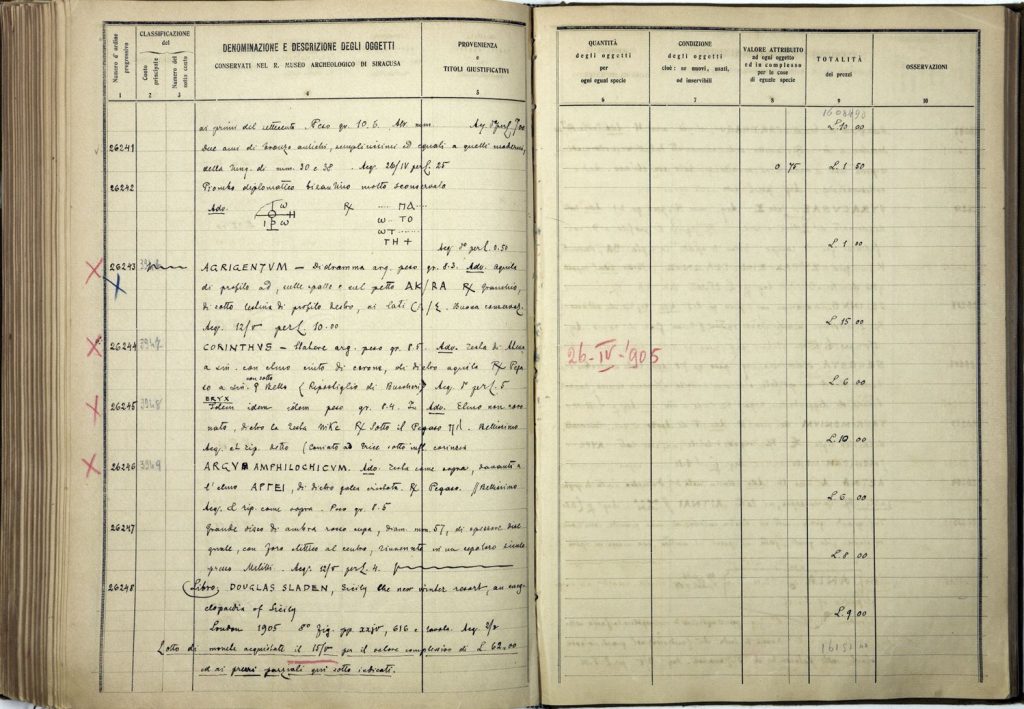 Numero d'ordine progressivo
CLASSIFICAZIONE del
Conto principale
Numero del sotto conto
DENOMINAZIONE E DESCRIZIONE DEGLI OGGETTI
CONSERVATI NEL R. MUSEO ARCHEOLOGICO DI SIRACUSA
PROVENIENZA
e
TITOLI GIUSTIFICATIVI
1 2 3 4 5
ai primi del settecento. Peso gr. 10.6.
26241 Due ami di bronzo antichi, semplicissimi ed eguali a quelli moderni,
della lung. di mm. 30 e 38. Acq. 26/IV per L. 25
26242 Piombo diplomatico bizantino molto sconservato
Adv. ℞
ω ..... ΠΔ...
Η ω... ΤΟ
Ι Ρ ω ωΤ......
ΤΗ +
per L. 0.50
26243 AGRIGENTVM — Didramma arg. peso gr. 8.3. Adv. aquila
di profilo ad, sulle spalle e sul petto AK/RA ℞ Granchio,
di sotto testina di profilo destro, ai lati
Acq. 12/V per L. 10.00
26244 3947 CORINTHVS — Statere arg. peso gr. 8.5. Adv. Testa di
a sin. con elmo cinto di corona, di dietro aquila ℞ Pega
so a sin. sotto Ϙ Bella (Ripostiglio di Buccheri) Acq. per L. 5
26245 3948 ERYX
Idem idem idem peso gr. 8.4. Adv. Elmo non coro
nato, dietro la testa Nike ℞ Sotto il Pegaso Bellissimo
Acq. el rip. detto (Coniato ad Erice sotto infl. corinzia
26246 3949 ARGVS AMPHILOCHICVM. Adv. Testa come sopra, davanti a
l'elmo ΑΡΓΕΙ, di dietro galea ℞ Pegaso. Bellissimo
Acq. el rip. come sopra. Peso gr. 8.5
26247 Grande disco di ambra rosso cupa, diam. mm. 57, di spessore disu
guale, con foro al centro, rinvenuto in un sepolcro siculo
presso Melilli. Acq. 12/V per L. 4.
26248 (Libro) DOUGLAS SLADEN, Sicily the new winter resort, an ency
clopaedia of Sicily
London 1905 8º fig. pp. xxiv, 616 e tavole. Acq.
Lotto di monete acquistate il 15/V per il valore complessivo di L. 62.00
ed ai prezzi parziali qui sotto indicati.
QUANTITÀ
degli oggetti
per
ogni egual specie
CONDIZIONE
degli oggetti
cioè: se nuovi, usati,
od inservibili
VALORE ATTRIBUITO
ad ogni oggetto
ed in complesso
per le cose
di eguale specie
TOTALITÀ
dei prezzi
OSSERVAZIONI
6 7 8 9 10
L. 10 00
0 75 L. 1 50
L. 1 00
L. 15 00
26-IV-'905
L. 6 00
L. 10 00
L. 6 00
L. 8 00
L. 9 00